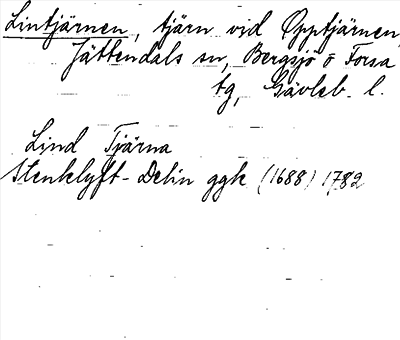 Lintjärnen, tjärn vid Opptjärnen,
Jättendals sn, Bergsjö o Forsa
tg, Gävleb. l.
Lind Tjärna
Stenklyft-Delin ggk (1688) 1782